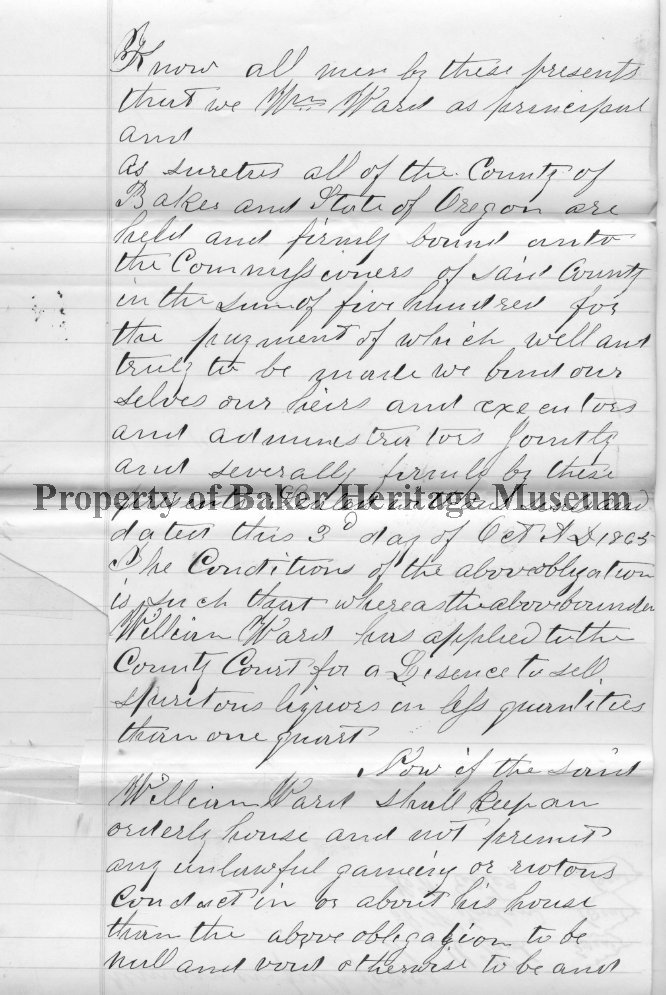 Know all men by these presents
that we Wm Ward as principal
and
as suretes all of the County of
Baker and State of Oregon are
held and firmly bound unto
the Commissioners of said County
in the sum of five hundred for
the payment of which well and
truly to be made we bind our
selves our heirs and executors
and administrators Jointly
and severally firmly by these
Property of Baker Heritage Museum
presents Sealed with our seals and
dated this 3d day of Oct A D 1865
The Conditions of the above obligation
is such that whereas the above bounden
William Ward has applied to the
County Court for a Lisence to sell
spiritous liquors in less quantities
than one quart
Now if the said
William Ward shall keep an
orderly house and not premit
any unlawful gameing or riotous
Conduct in or about his house
than the above obligation to be
null and void otherwise to be and